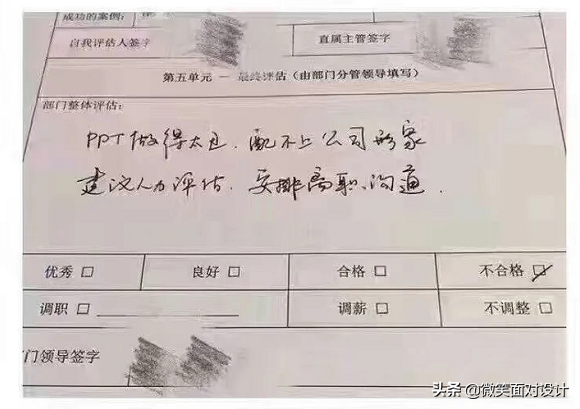 成功的案例:
自我评估人签字 直属主管签字
第五单元 — 最终评估(由部门分管领导填写)
部门整体评估:
PPT做得太丑,配不上公司形象
建议人力评估,安排离职沟通.
优秀 □ 良好 □ 合格 □ 不合格 ☑
调职 □ 调薪 □ 不调整 □
门领导签字
头条 @微笑面对设计